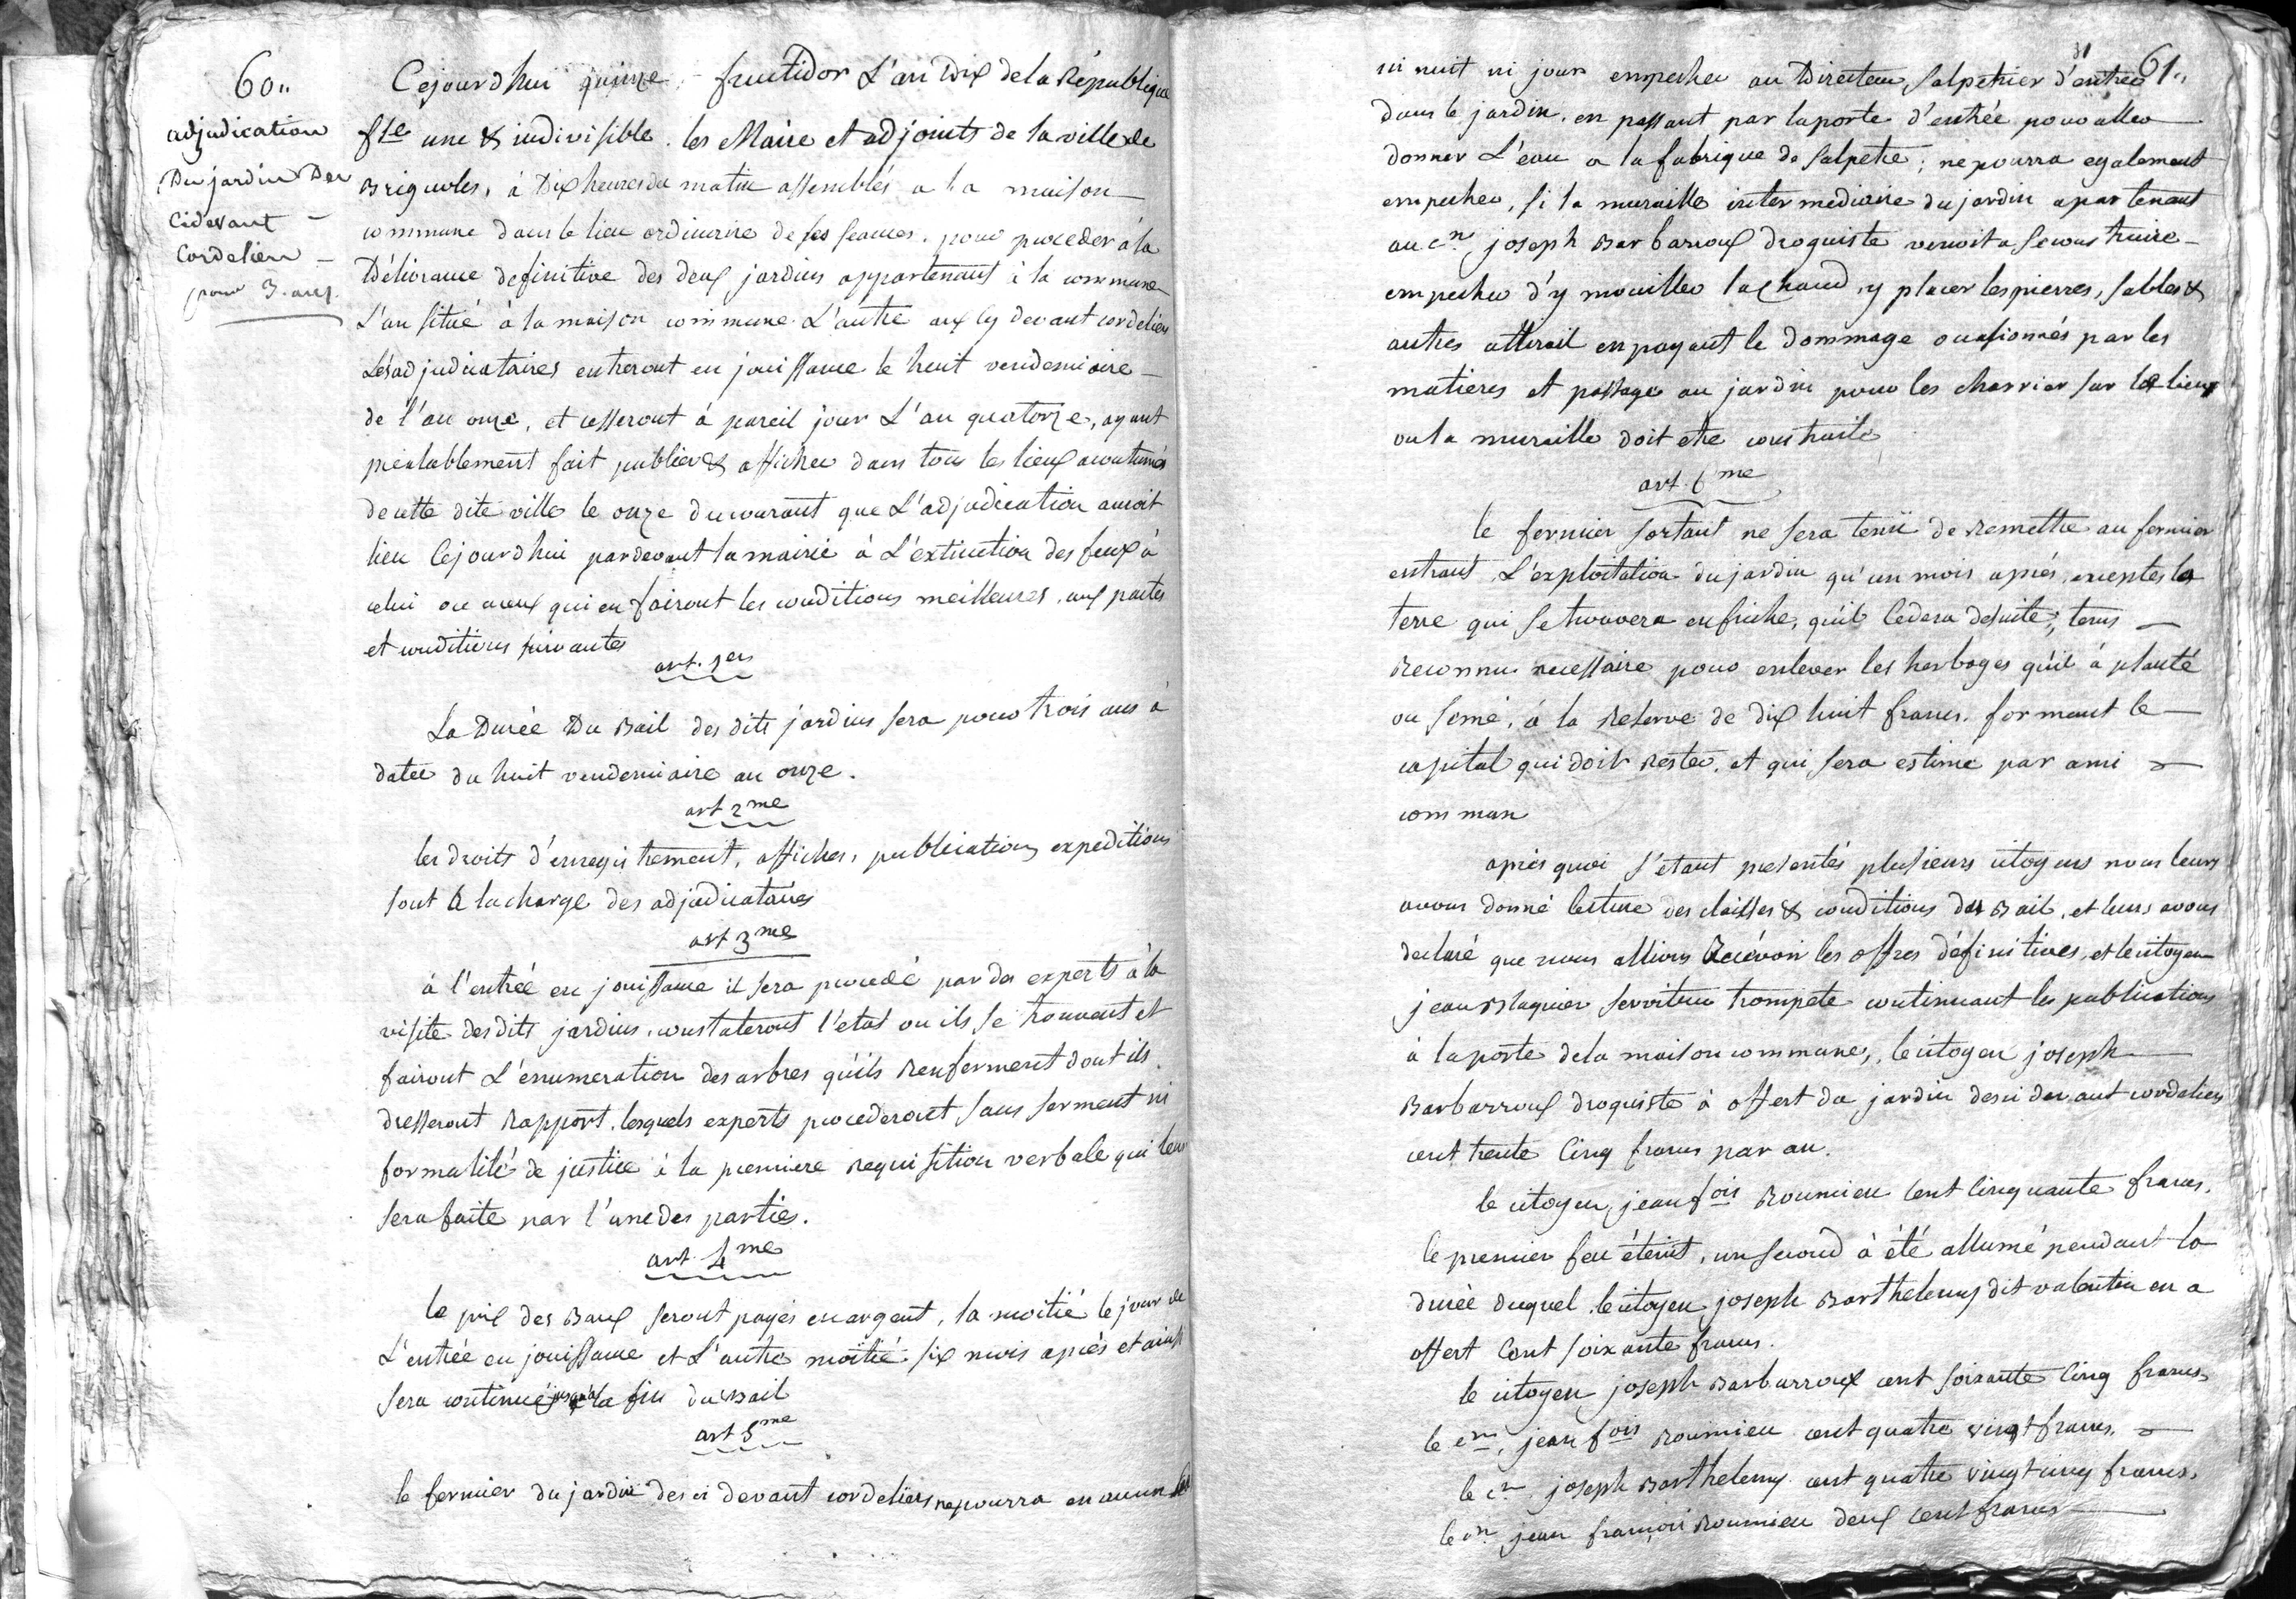 60"
adjudication
Du jardin Des
cidevant
Cordelien
pour 3. ans
Cejourdhui quinze fructidor L'an Dix de la Republique
fse une & indivisible. les Maire et adjoints de la ville de
Brignoles, à Dix heures du matin assemblés a la maison
commune dans le lieu ordinaire de ses seances. pour proceder à la
Délivrance definitive des deux jardins appartenant à la commune
L'un situé à la maison commune L'autre aux cy devant cordeliers
Les adjudicataires entreront en jouissance le huit vendemiaire
de l'an onze, et cesseront à pareil jour L'an quatorze, ayant
préalablement fait publier & afficher dans tous les lieux acoutumés
de cette dite ville le onze du courant que L'adjudication auroit
lieu Cejourdhui pardevant la mairie à L'extinction des feux à
celui ou ceux qui en fairont les conditions meilleures, aux pactes
et conditions suivantes
art. 1er
La Durée Du Bail des dits jardins sera pour trois ans à
datter du huit vendemiaire an onze.
art 2me
les droits d'enregistrement, affiches, publications expeditions
sont à la charge des adjudicataires
art 3me
à l'entrée en jouissance il sera procedé par des experts à la
visite desdits jardins, constateront l'etat ou ils se trouvent et
fairont L'enumeration des arbres qu'ils renferment dont ils
dresseront Rapport. lesquels experts procederont sans serment ni
formalité de justice à la premiere requisition verbale qui leur
sera faite par l'une des parties.
art. 4me
le prix des Baux seront payés en argent, la moitié le jour de
L'entrée en jouissance et L'autre moitié six mois après et ainsi
sera continué jusqu'à la fin du Bail
art 5me
le fermier du jardin des ci devant cordeliers ne pourra en aucun
61"
ni nuit ni jour empecher au Directeur Salpetrier d'entrer
dans le jardin, en passant par la porte d'entrée pour aller
donner L'eau a la fabrique de salpetre; ne pourra egalement
empecher, si la muraille intermediaire du jardin apartenant
au cn joseph Barbaroux droguiste venoit a se construire
empecher d'y mouiller la chaud, y placer les pierres, sables &
autres attirail en payant le dommage ocasionnés par les
matieres et passage au jardin pour les charrier sur les lieux
ou la muraille doit etre construite
art. 6me
le fermier sortant ne sera tenu de remettre au fermier
entrant L'exploitation du jardin qu'un mois après, exceptes la
terre qui se trouvera en friche, qu'il cedera desuite, tems
reconnu necessaire pour enlever les herbages qu'il à planté
ou semé, à la reserve de dix huit francs. formant le
capital qui doit rester, et qui sera estimé par ami
comman
après quoi s'etant presentés plusieurs citoyens nous leurs
avons donné lecture des clausses & conditions des Bail, et leurs avons
declaré que nous allions Recevoir les offres définitives, et le citoyen
jean Blaquier serviteur trompete continuant les publications
à la porte de la maison commune, le citoyen joseph
Barbarroux droguiste à offert du jardin des ci devant cordeliers
cent trente Cinq francs par an.
le citoyen jean fois Roumieu cent Cinquante francs.
le premier feu éteint, un second à été allumé pendant la
durée duquel le citoyen joseph Barthelemy dit valentin en a
offert Cent soixante francs.
le citoyen joseph Barbarroux cent soixante Cinq francs
le cn, jean fois Roumieu cent quatre vingt francs.
le cn joseph Barthelemy cent quatre vingt cinq francs.
le cn jean françois Roumieu deux cent francs